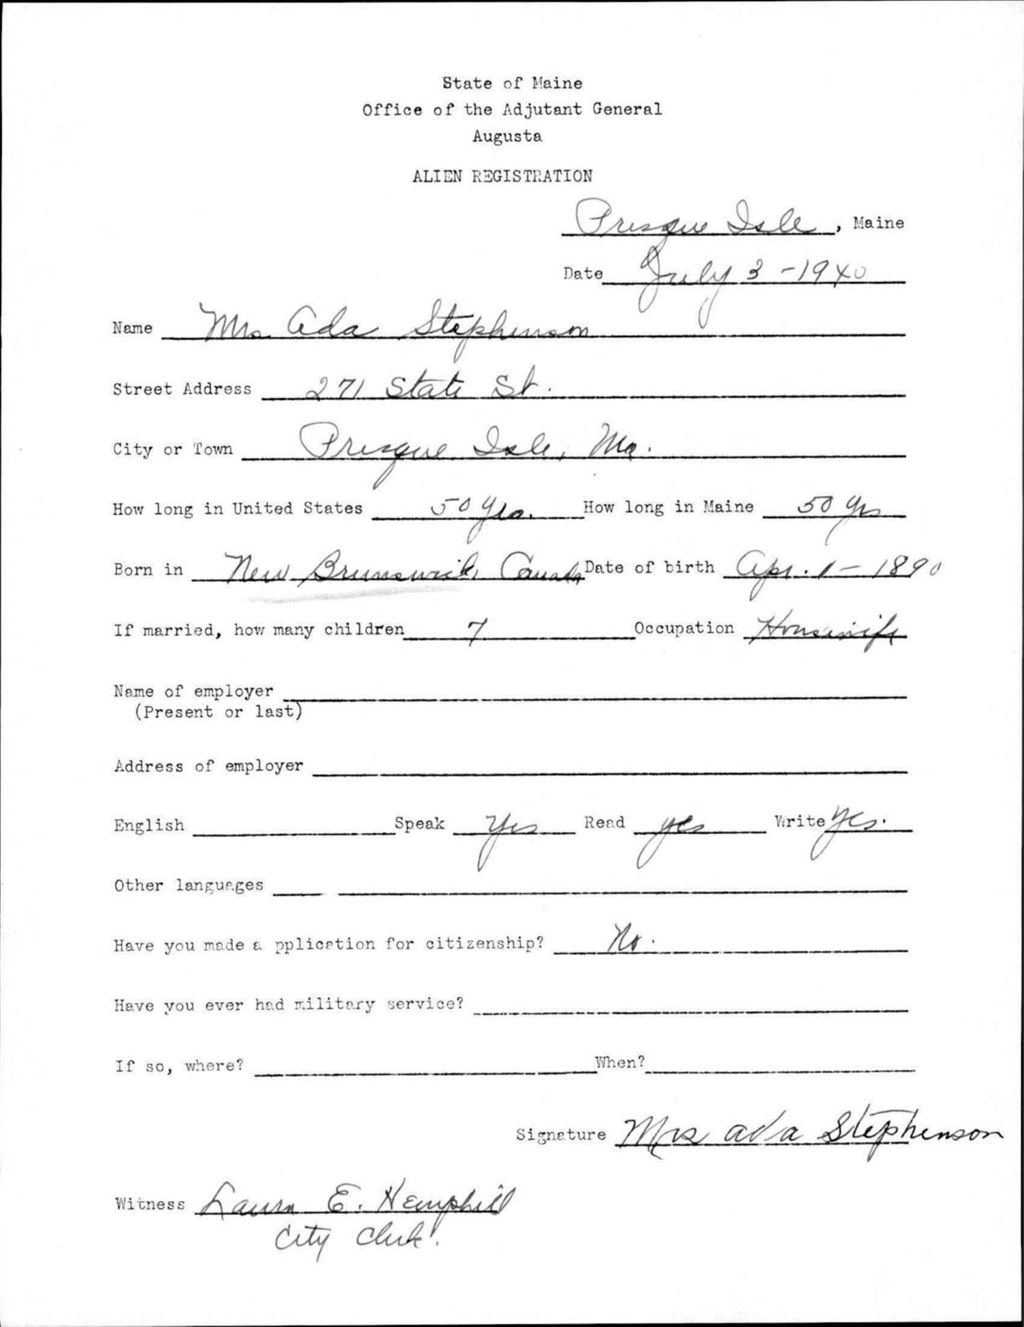 State of Maine
Office of the Adjutant General
Augusta
ALIEN REGISTRATION
Presque Isle, Maine
Date July 3 - 1940
Name Mrs. Ada Stephenson
Street Address 271 State St.
City or Town Presque Isle, Me.
How long in United States 50 yrs. How long in Maine 50 yrs
Born in New Brunswick, Canada Date of birth Apr. 1 - 1890
If married, how many children 7 Occupation Housewife
Name of employer
(Present or last)
Address of employer
English Speak Yes Read yes Write Yes.
Other languages
Have you made a pplication for citizenship? No.
Have you ever had military service?
If so, where? When?
Signature Mrs Ada Stephenson
Witness Laura E. Hemphill
City Clerk.